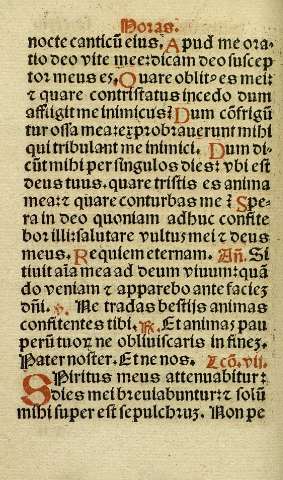 Horas.
nocte canticū eius. Apud me ora
tio deo vite mee: dicam deo suscep
tor meus es. Quare oblit⁹ es mei:
⁊ quare contristatus incedo dum
affligit me inimicus? Dum cōfrigū
tur ossa mea: exprobrauerunt mihi
qui tribulant me inimici. Dum di
cūt mihi per singulos dies: vbi est
deus tuus. quare tristis es anima
mea: ⁊ quare conturbas me? Spe-
ra in deo quoniam adhuc confite
bor illi: salutare vultus mei ⁊ deus
meus. Requiem eternam. Añ. Si
tiuit aīa mea ad deum viuum: quā
do veniam ⁊ apparebo ante faciez
dñi. ℣. Ne tradas bestijs animas
confitentes tibi. ℟. Et animas pau
perū tuoꝝ ne obliuiscaris in finez.
Pater noster. Et ne nos. Lcō. vij.
Spiritus meus attenuabitur:
dies mei breuiabuntur: ⁊ solū
mihi super est sepulchruz. Non pe